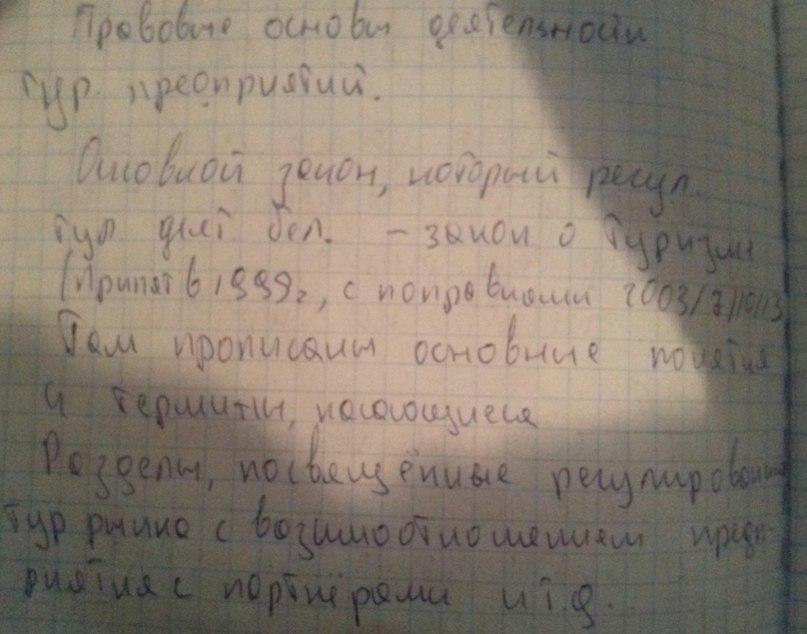 Правовые основы деятельности
тур. предприятий.
Основной закон, который регул.
тур деят бел. – закон о туризме
(Принят в 1999г, с поправками 2003/7/10/13
Там прописаны основные понятия
и термины, касающиеся
Разделы, посвящённые регулировании
тур рынка с взаимоотношением предп-
риятия с партнёрами и т.д.